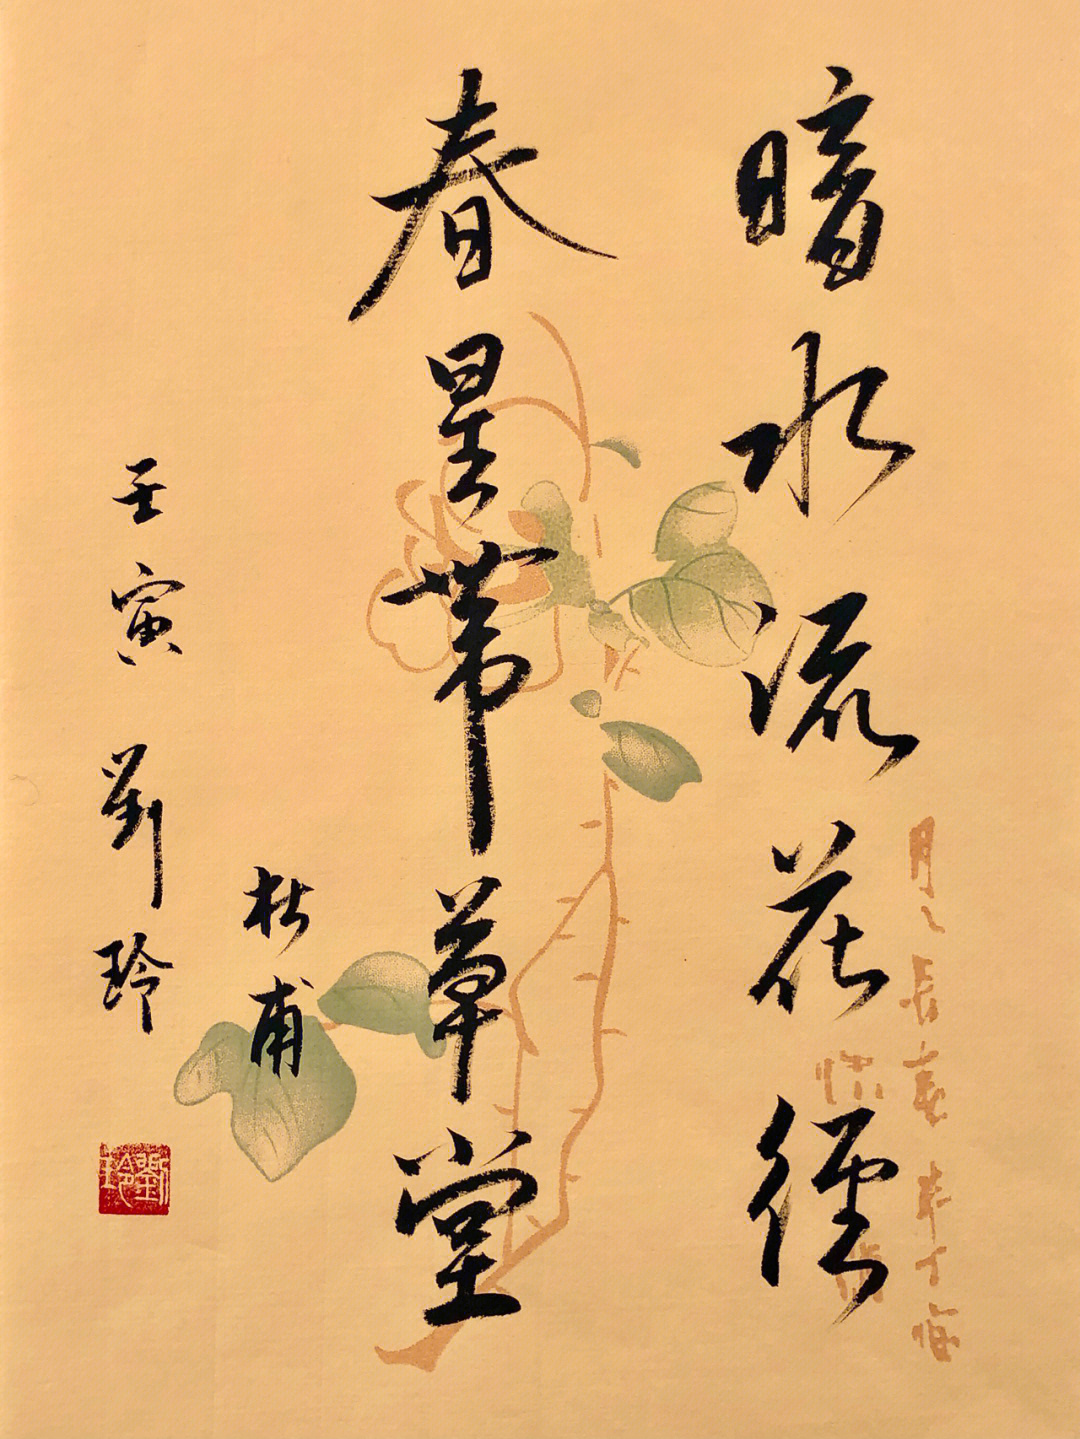 暗水流花徑
春星帶草堂
杜甫
壬寅 劉玲
劉玲